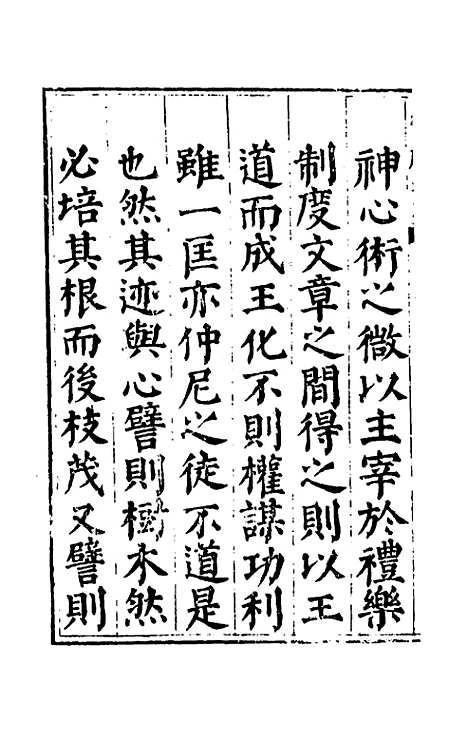 神心術之微以主宰於禮樂
制度文章之間得之則以王
道而成王化不則權謀功利
雖一匡亦仲尼之徒不道是
也然其迹與心譬則樹木然
必培其根而後枝茂又譬則